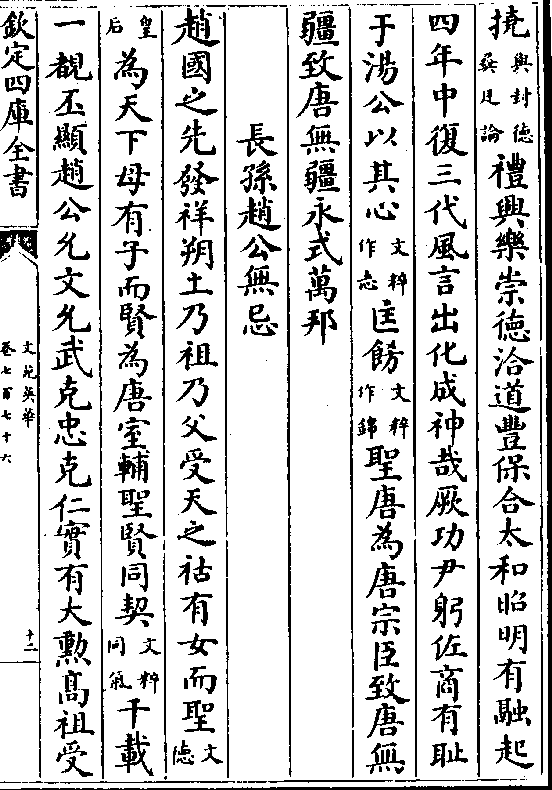 撓與封德彝廷論禮興樂崇德洽道豐保合太和昭明有融起
四年中復三代風言出化成神哉厥功尹躬佐商有恥
于湯公以其心文粹作志匡餝文粹作錦聖唐為唐宗臣致唐無
疆致唐無疆永式萬邦
長孫趙公無忌
趙國之先發祥朔土乃祖乃父受天之祜有女而聖文德
皇后為天下母有子而賢為唐室輔聖賢同契文粹同氣千載
一覩丕顯趙公允文允武克忠克仁實有大勲髙祖受
欽定四庫全書
文苑英華
卷七百七十六
十二